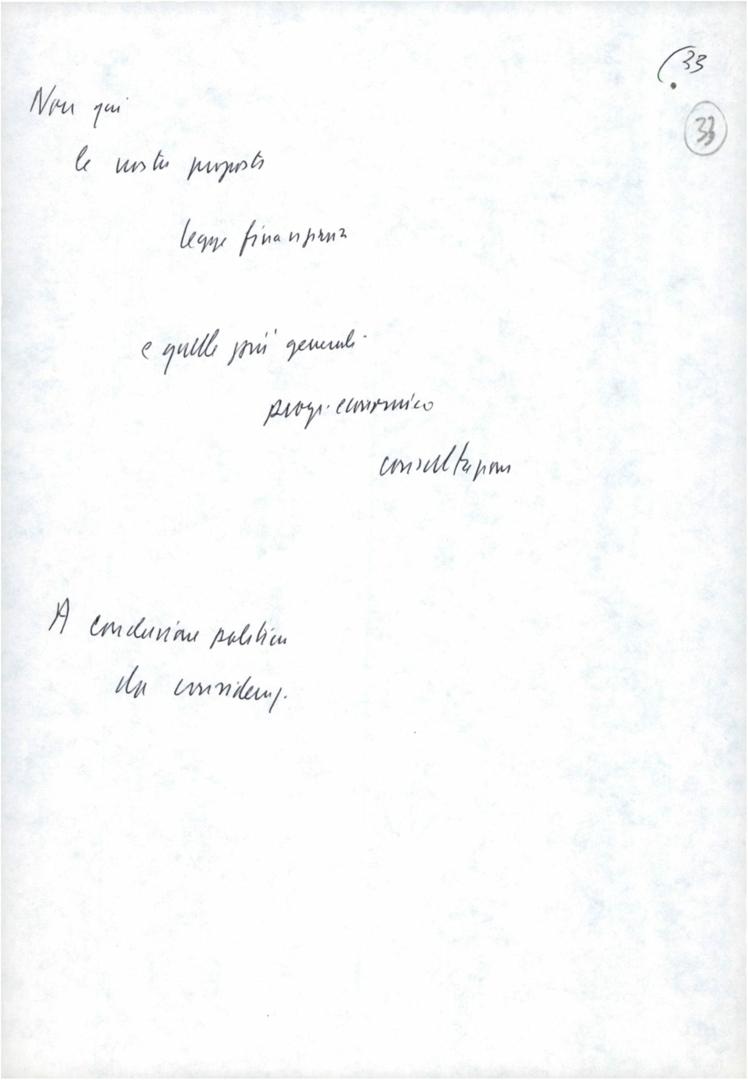 33
33
Non qui
le nostre proposte
legge finanziaria
e quelle più generali
progr. economico
consultazioni
A conclusione politica
da consideraz.